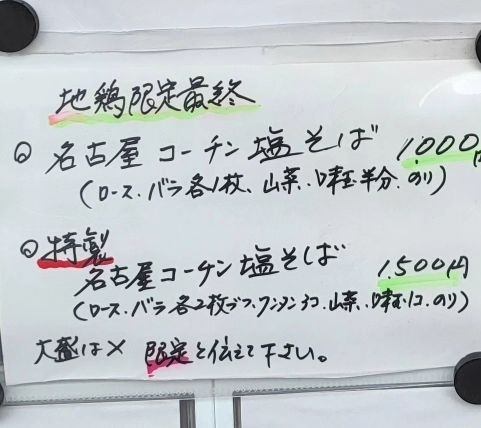 地鶏限定最終
◎ 名古屋コーチン塩そば 1,000円
(ロース、バラ各1枚、山菜、味玉半分、のり)
◎ 特製
名古屋コーチン塩そば 1,500円
(ロース、バラ各2枚づつ、ワンタン2コ、山菜、味玉1コ、のり)
大盛は× 限定と伝えて下さい。